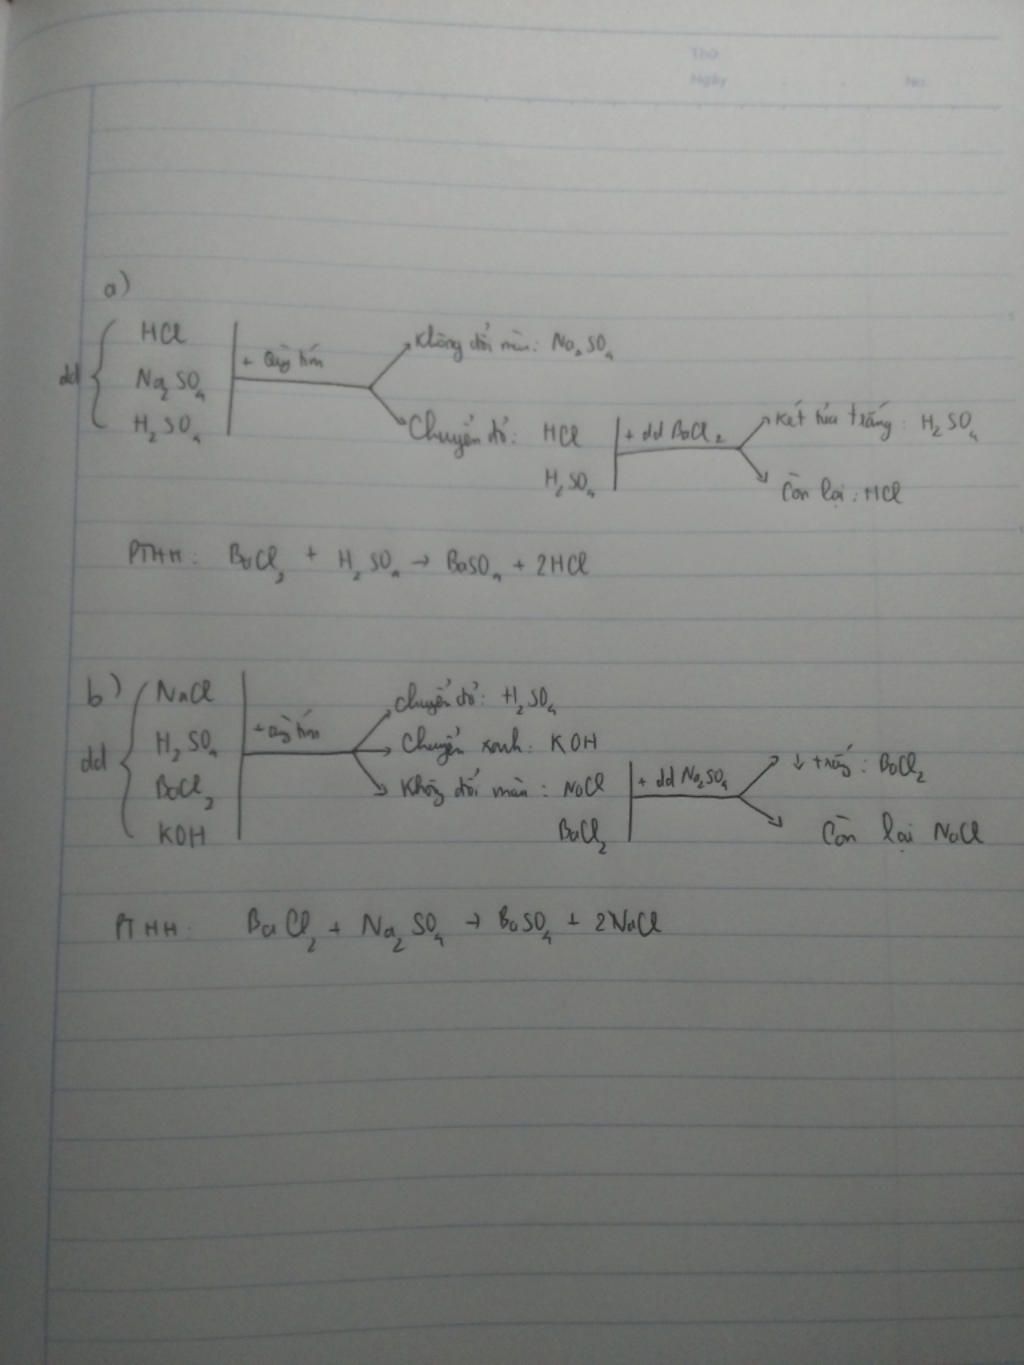 Thứ
Ngày No.
a)
dd { HCl
Na₂SO₄
H₂SO₄
+ Quỳ tím
Không đổi màu: Na₂SO₄
Chuyển đỏ: HCl
H₂SO₄
+ dd BaCl₂
Kết tủa trắng: H₂SO₄
Còn lại: HCl
PTHH: BaCl₂ + H₂SO₄ → BaSO₄ + 2HCl
b)
dd { NaCl
H₂SO₄
BaCl₂
KOH
+ Quỳ tím
Chuyển đỏ: H₂SO₄
Chuyển xanh: KOH
Không đổi màu: NaCl
BaCl₂
+ dd Na₂SO₄
↓ trắng: BaCl₂
Còn lại NaCl
PTHH: BaCl₂ + Na₂SO₄ → BaSO₄ + 2NaCl